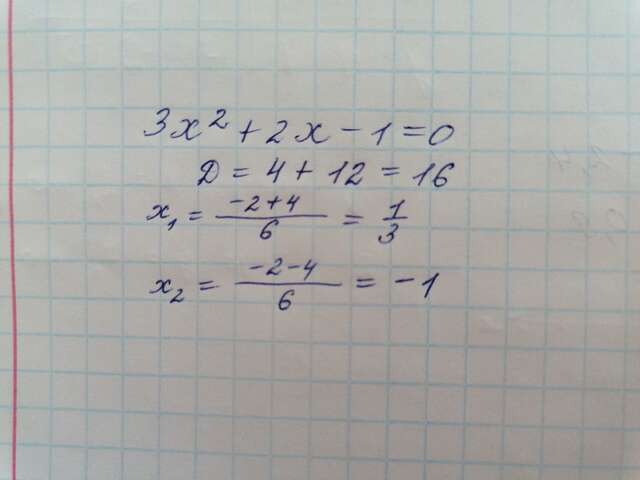 3x² + 2x - 1 = 0
D = 4 + 12 = 16
x₁ = (-2+4)/6 = 1/3
x₂ = (-2-4)/6 = -1